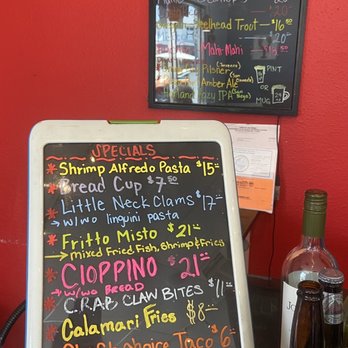 Steelhead Trout — $16.50
20
Mahi-Mahi
Pilsner
PINT
Amber Ale
OR
IPA
MUG
SPECIALS
* Shrimp Alfredo Pasta $15
* Bread Cup $7.50
* Little Neck Clams $17
w/wo linguini pasta
* Fritto Misto $21
→ mixed Fried Fish, Shrimp & Fries
* CIOPPINO $21
→ w/wo BREAD
* C.R.A.B CLAW BITES $11
* Calamari Fries $8
Taco $6